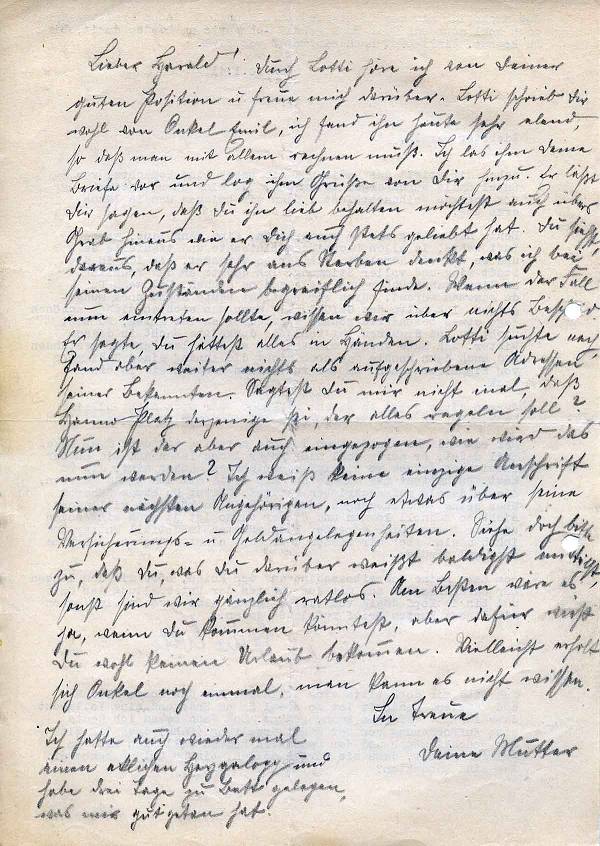 Lieber Harald! Durch Lotti höre ich von Deiner
guten Position u freue mich darüber. Lotti schrieb Dir
wohl von Onkel Emil, ich fand ihn heute sehr elend,
so daß man mit allem rechnen muß. Ich las ihm Deine
Briefe vor und log ihm Grüße von Dir hinzu. Er läßt
Dir sagen, daß Du ihn lieb behalten möchtest auch übers
Grab hinaus wie er Dich auch stets geliebt hat. Du siehst
daraus, daß er sehr ans Sterben denkt, was ich bei
seinen Zuständen begreiflich finde. Wenn der Fall
nun eintreten sollte, wissen wir über nichts Bescheid
Er sagte, Du hättest alles in Händen. Lotti suchte nach,
fand aber weiter nichts als aufgeschriebene Adressen
seiner Bekannten. Sagtest Du mir nicht mal, daß
Hanno Platz derjenige sei, der alles regeln soll?
Nun ist der aber auch eingezogen, wie wird das
nun werden? Ich weiß keine einzige Anschrift
seiner nächsten Angehörigen, noch etwas über seine
Versicherungs- u. Geldangelegenheiten. Siehe doch bitte
zu, daß Du, was Du darüber weißt baldigst
sonst sind wir gänzlich ratlos. Am Besten wäre es
ja, wenn Du kommen könntest, aber dafür wirst
Du wohl keinen Urlaub bekommen. Vielleicht erholt
sich Onkel noch einmal, man kann es nicht wissen.
In Treue
Deine Mutter
Ich hatte auch wieder mal
einen ekligen und
habe drei Tage zu Bett gelegen,
was mir gut getan hat.